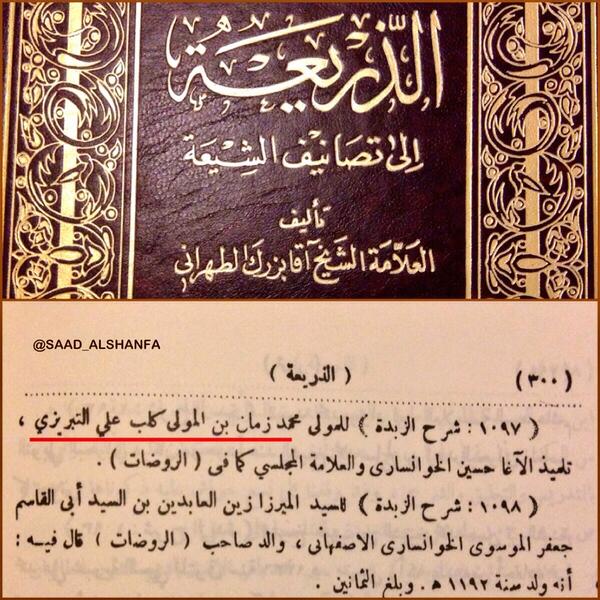 الذّريعة
إلى تصانيف الشيعة
تأليف
العلّامة الشيخ آقا بزرك الطهراني
@SAAD_ALSHANFA
(٣٠٠) (الذريعة)
(١٠٩٧ : شرح الزبدة) للمولى محمد زمان بن المولى كلب علي التبريزي ،
تلميذ الآغا حسين الخوانسارى والعلامة المجلسي كما فى (الروضات) .
(١٠٩٨ : شرح الزبدة) للسيد الميرزا زين العابدين بن السيد أبي القاسم
جعفر الموسوى الخوانسارى الاصفهانى ، والد صاحب (الروضات) قال فيه :
أنه ولد سنة ١١٩٢ هـ . وبلغ الثمانين .